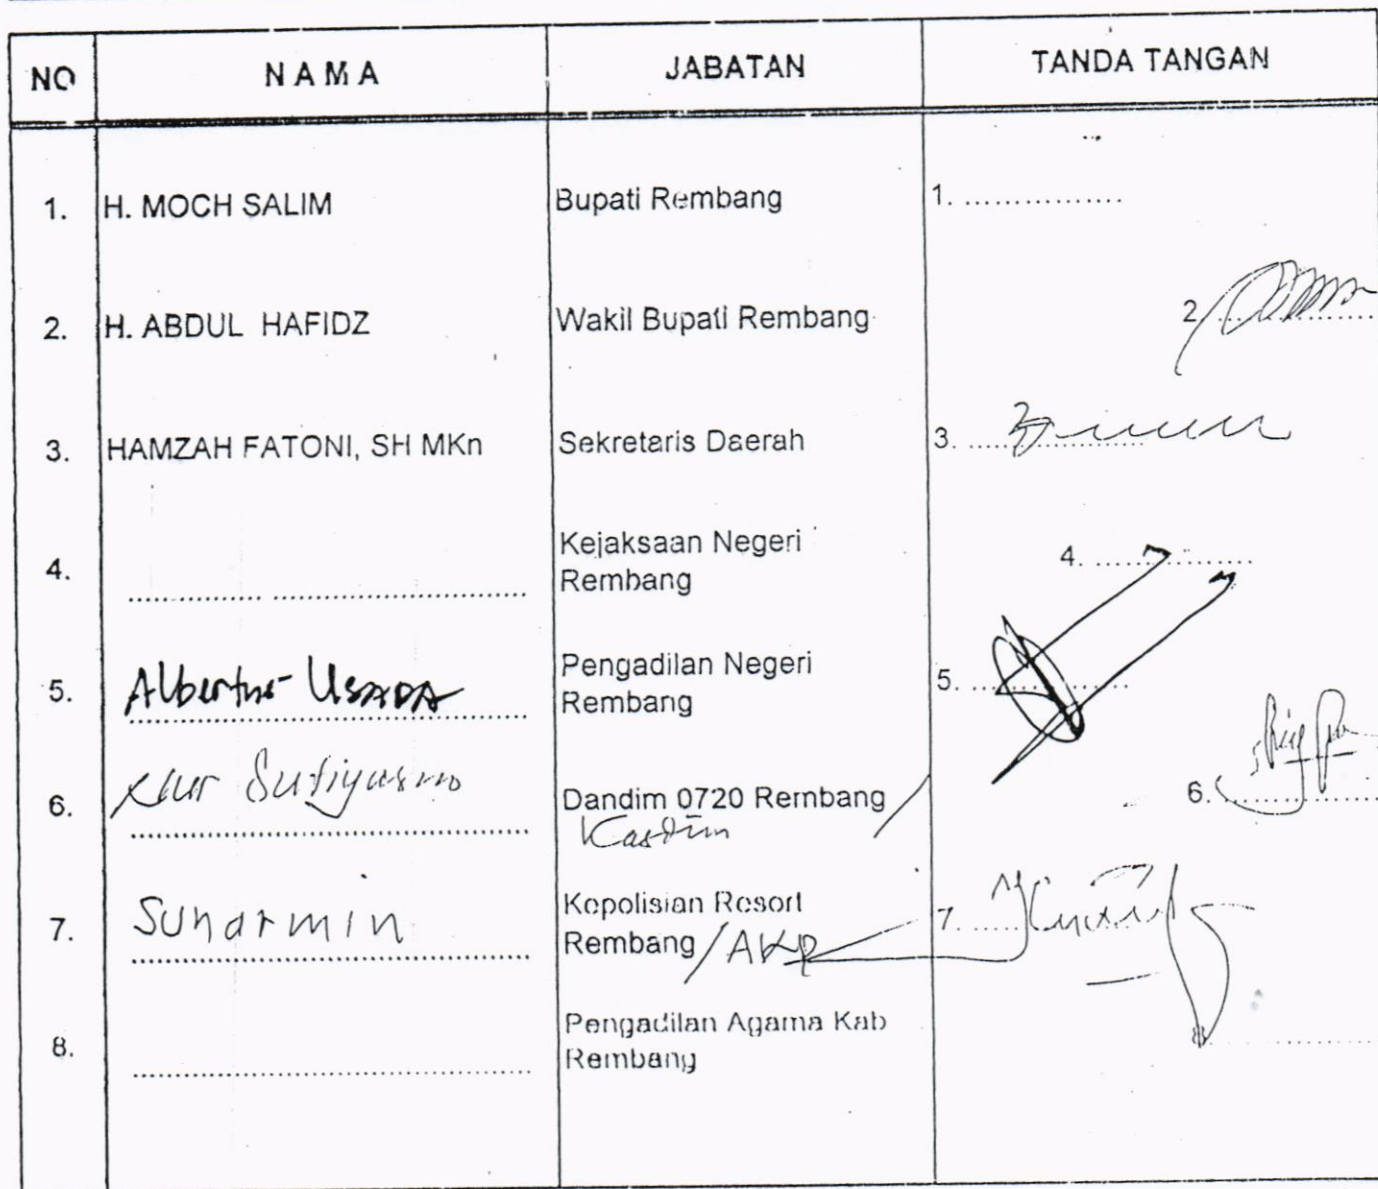 NO NAMA JABATAN TANDA TANGAN
1. H. MOCH SALIM Bupati Rembang 1. ................
2. H. ABDUL HAFIDZ Wakil Bupati Rembang 2. ................
3. HAMZAH FATONI, SH MKn Sekretaris Daerah 3. ................
4. ................ Kejaksaan Negeri 4. ................
Rembang
5. Albertus USADA Pengadilan Negeri 5. ................
Rembang
6. Sutiyasno Dandim 0720 Rembang 6. ................
Kasdim
7. Sunarmin Kepolisian Resort 7. ................
Rembang / AKP
8. ................ Pengadilan Agama Kab 8. ................
Rembang